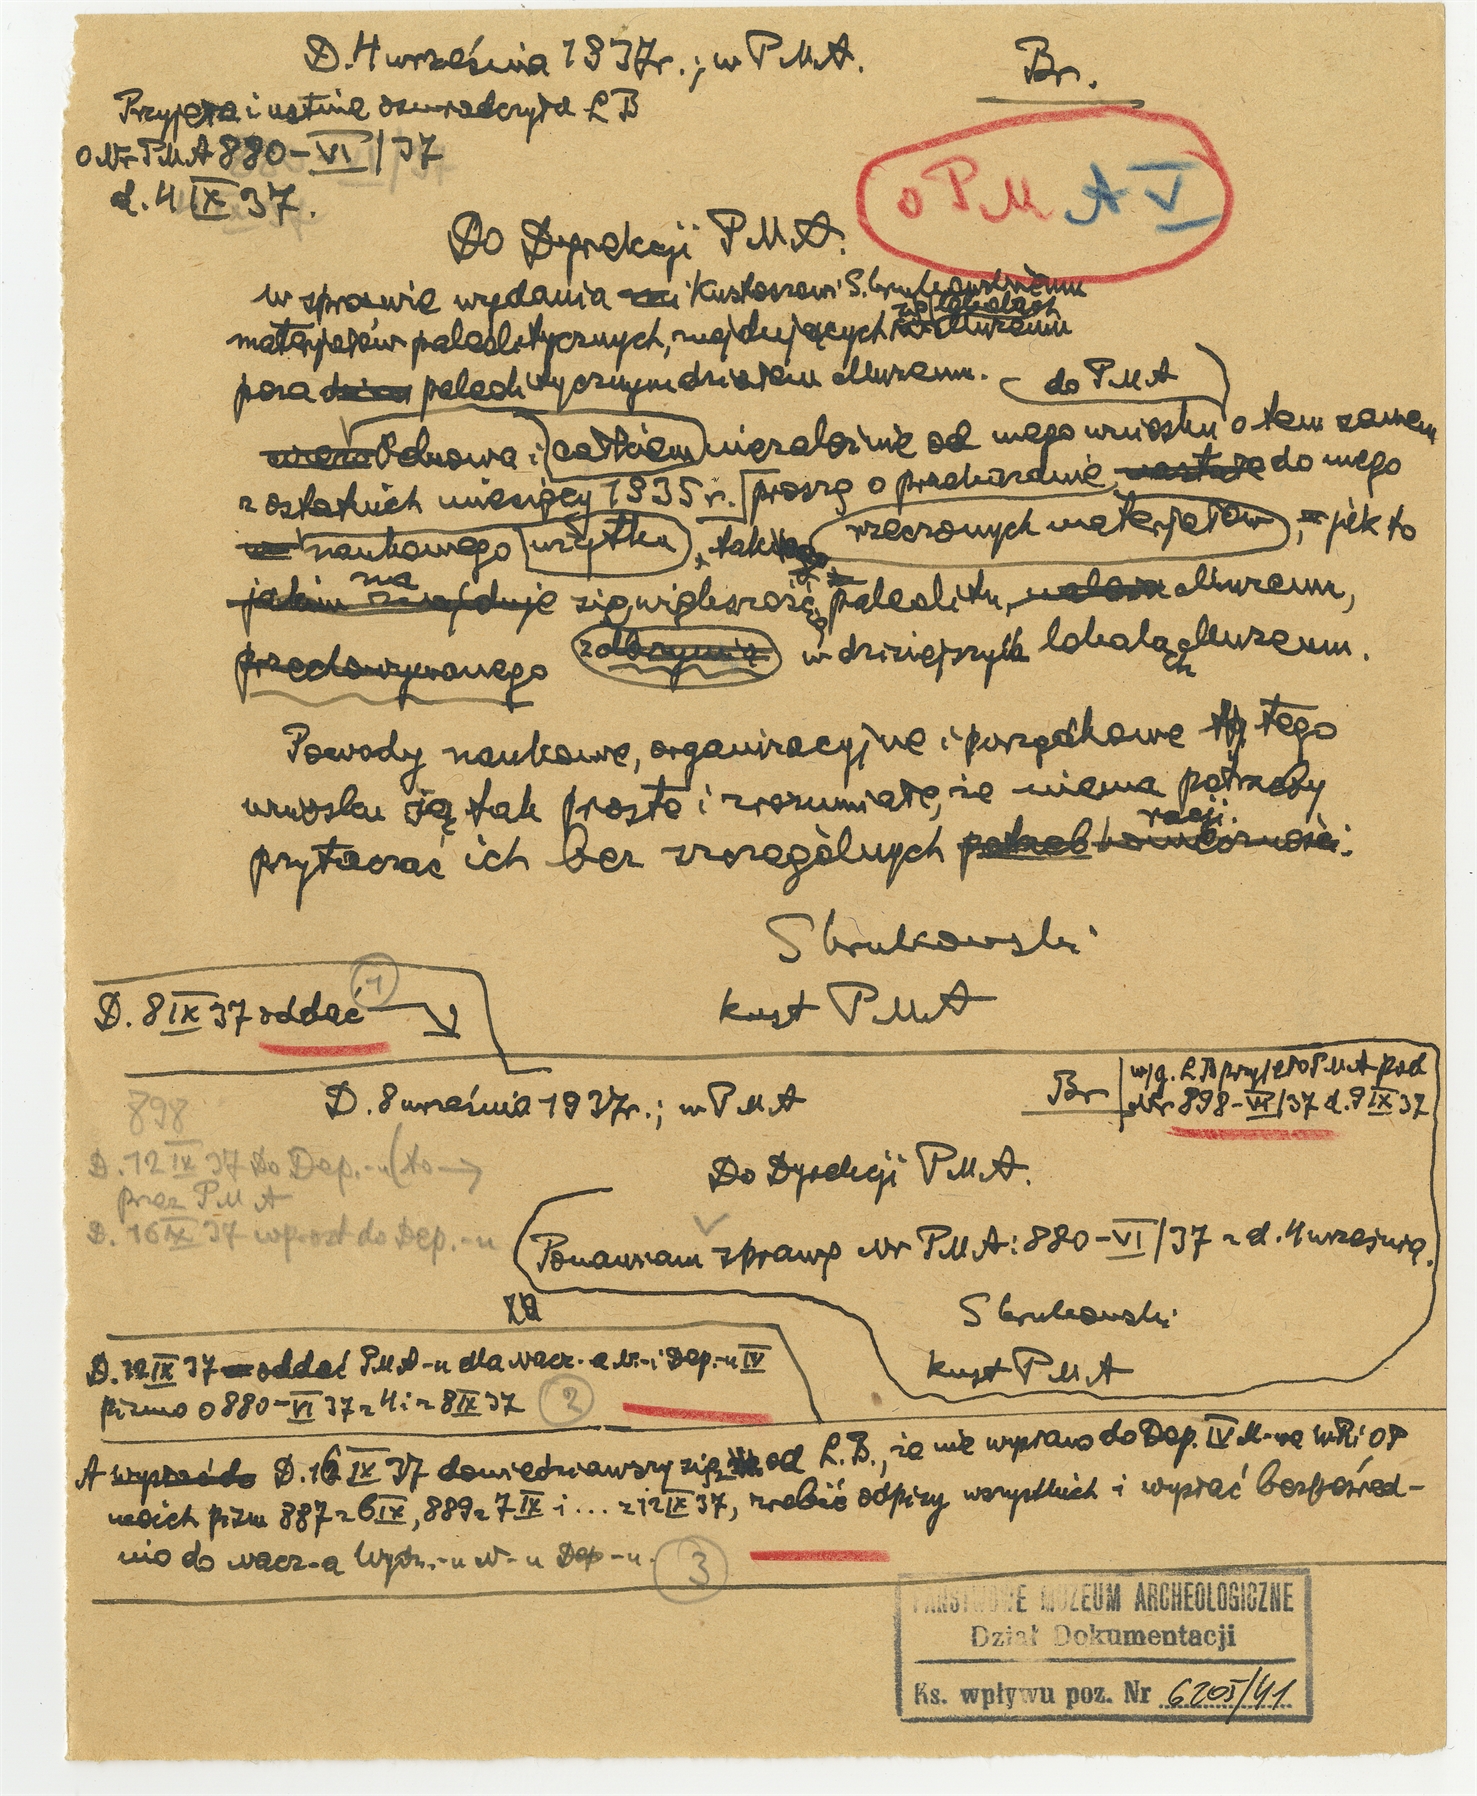 D. 4 września 1937r.; w PMA.
Br.
Przyjęta i ustnie oświadczyła ŁB
o Nr PMA 880-VI/37
d. 4 IX 37.
o PMA V
Do Dyrekcji PMA.
w sprawie wydania Kustoszowi S. Krukowskiemu
materjałów paleolitycznych, znajdujących się w lokalach Muzeum
poza paleolitycznym działem Muzeum.
do PMA
Odnowa i całkiem niezależnie od mego wniosku o tem samem
z ostatnich miesięcy 1935 r. proszę o przekazanie do mego
naukowego użytku, rzeczonych materjałów, jak to
jakim znajduje się większość paleolitu, Muzeum,
przechowywanego w dzisiejszych lokalach Muzeum.
Powody naukowe, organizacyjne i porządkowe tego
wniosku są tak proste i zrozumiałe, że niema potrzeby
przytaczać ich bez szczególnych racji.
SKrukowski
kust PMA
D. 8 IX 37 oddać 1
D. 8 września 1937r.; w PMA
Br
wg. ŁB przyjęto PMA pod
Nr 898-VI/37 d. 9 IX 37
898
D. 12 IX 37 Do Dep.-u (to →
przez PMA
D. 16 IX 37 wprost do Dep.-u
Do Dyrekcji PMA.
Ponawiam sprawę Nr PMA: 880-VI/37 z d. 4 września.
SKrukowski
kust PMA
za
D. 12 IX 37 oddać PMA-u dla nacz.-a N.-i Dep.-u IV
pismo o 880-VI 37 z 4 i z 8 IX 37 2
A D. 16 IX 37 dowiedziawszy się od Ł.B., że nie wysłano do Dep. IV M-wa WRiOP
moich pism 887 z 6 IX, 889 z 7 IX i ... z 12 IX 37, zrobić odpisy wszystkich i wysłać bezpośred-
nio do nacz-a Wydz.-u N-u Dep-u. 3
PAŃSTWOWE MUZEUM ARCHEOLOGICZNE
Dział Dokumentacji
Ks. wpływu poz. Nr 6205/41